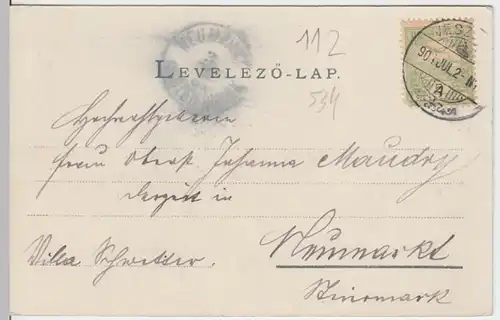 112
534
LEVELEZŐ-LAP.
901 JUL. 2
Hochwohlgeboren
Frau Oberst Johanna Maudry
derzeit in
Villa Schwetter.
Neumarkt
Steiermark